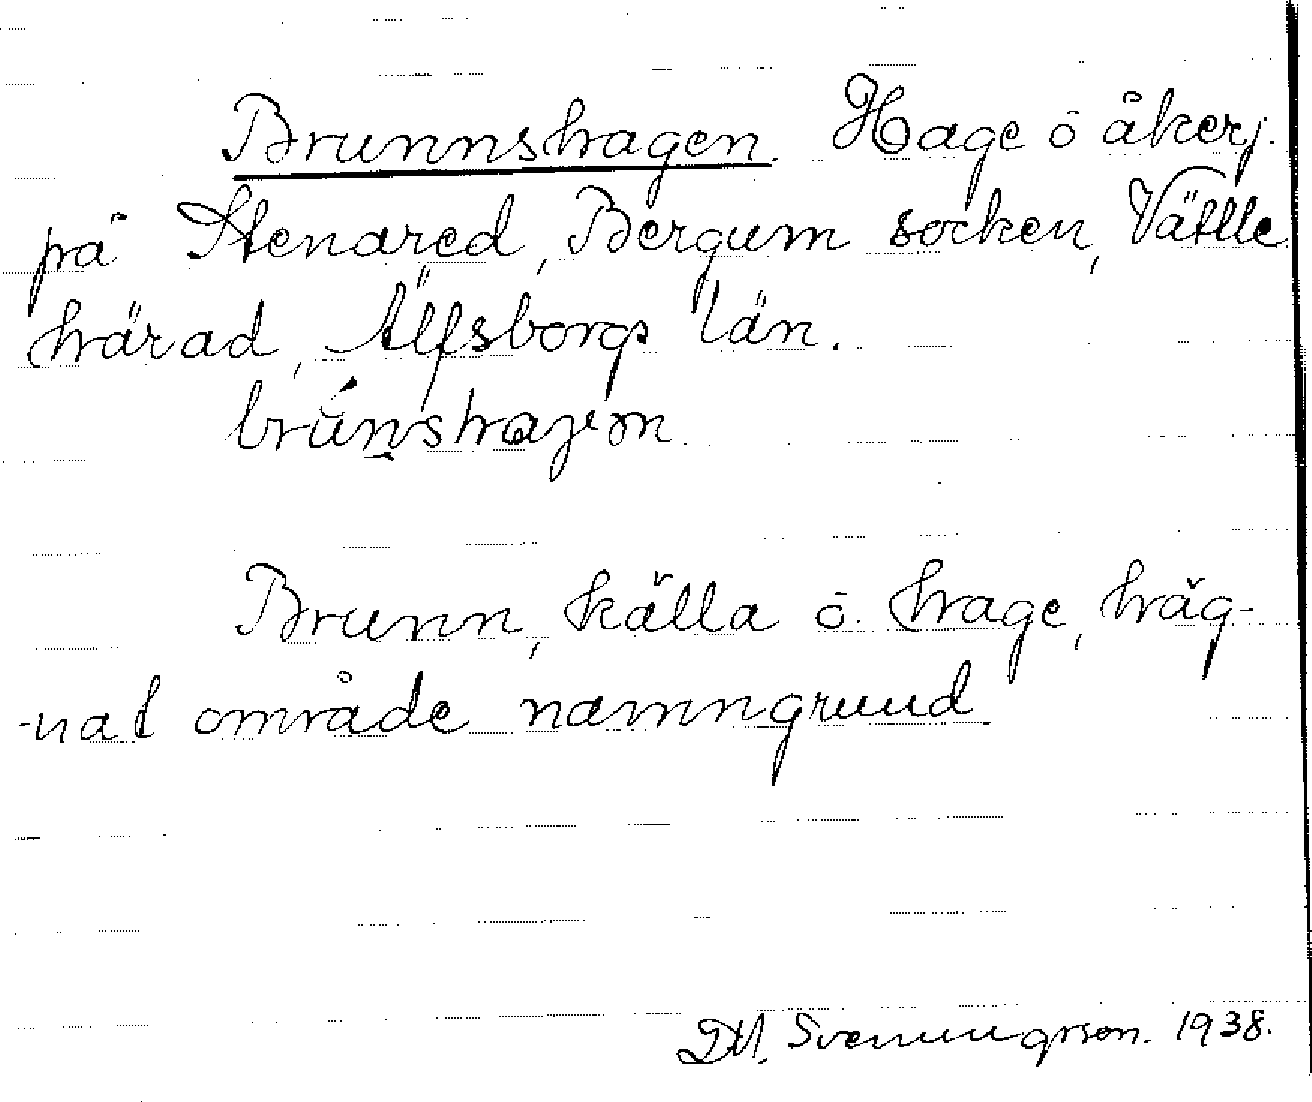 Brunnshagen. Hage o åkerj.
på Stenared, Bergum socken, Vättle
härad, Älfsborgs län.
brúnshagen.
Brunn, källa o. hage, häg-
-nat område namngrund.
D.M. Svenningsson. 1938.